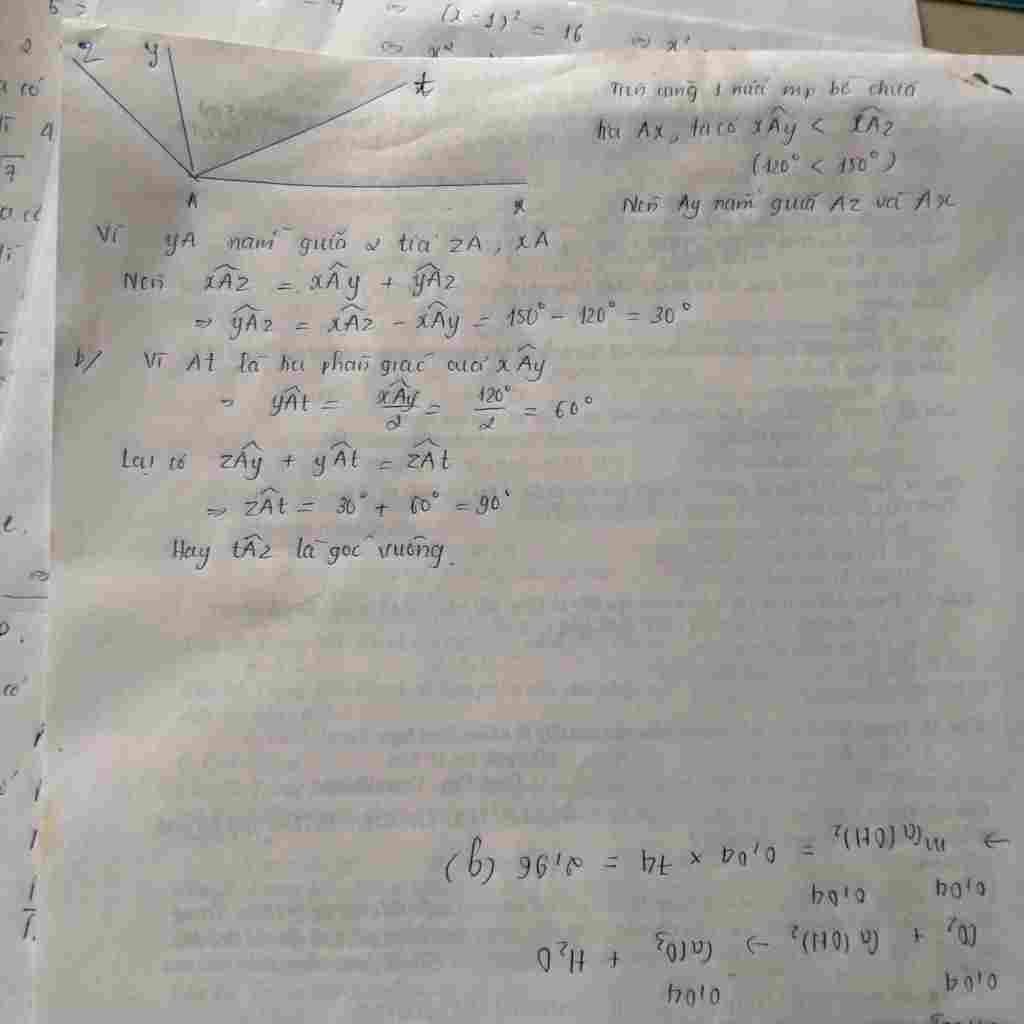 (x-1)² = 16
z y t
A x
Trên cùng 1 nửa mp bờ chứa
tia Ax, ta có xÂy < xÂz
(120° < 150°)
Nên Ay nằm giữa Az và Ax
Vì yA nằm giữa 2 tia zA, xA
Nên xÂz = xÂy + yÂz
⇒ yÂz = xÂz - xÂy = 150° - 120° = 30°
b/ Vì At là tia phân giác của xÂy
⇒ yÂt = xÂy/2 = 120°/2 = 60°
Lại có zÂy + yÂt = zÂt
⇒ zÂt = 30° + 60° = 90°
Hay tÂz là góc vuông.
0,04 0,04
CO₂ + Ca(OH)₂ → CaCO₃ + H₂O
0,04 0,04
→ mCa(OH)₂ = 0,04 x 74 = 2,96 (g)